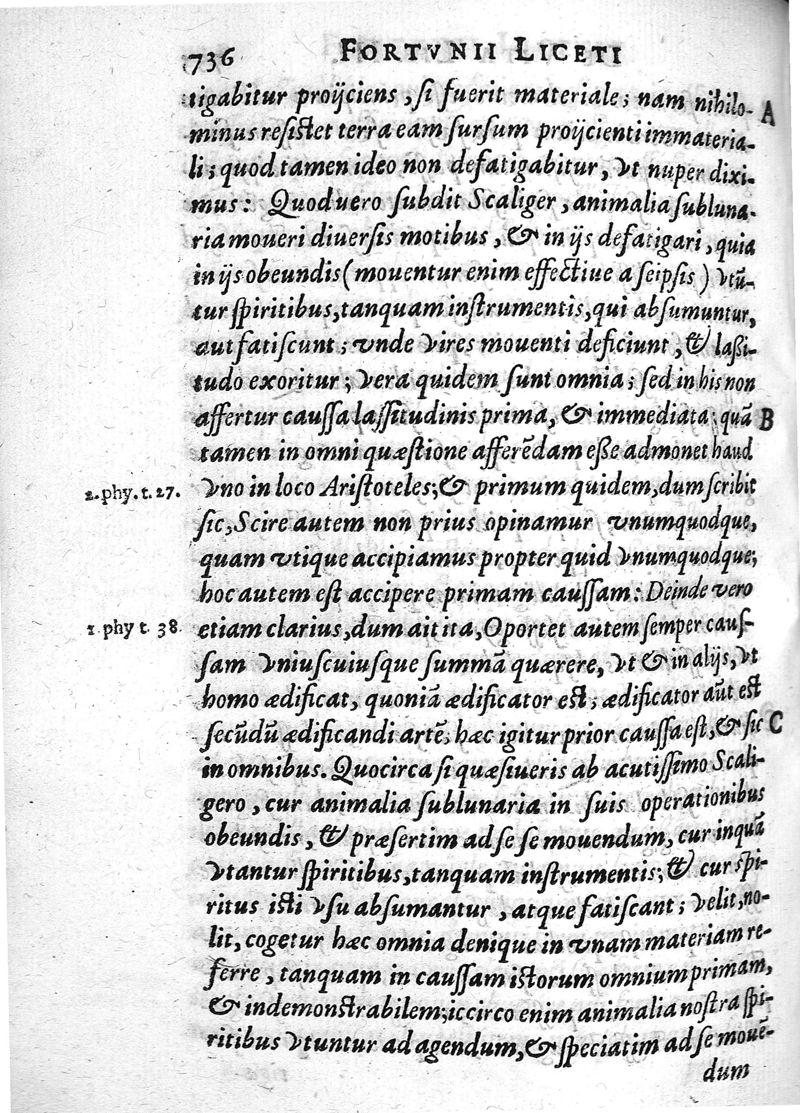 736 FORTVNII LICETI
tigabitur proijciens, ſi fuerit materiale; nam nihilo- A
minus reſiſtet terra eam ſurſum proijcienti immateria-
li; quod tamen ideo non defatigabitur, vt nuper dixi-
mus: Quod uero ſubdit Scaliger, animalia ſubluna-
ria moueri diuerſis motibus, & in ijs defatigari, quia
in ijs obeundis (mouentur enim effectiue a ſeipſis) vtũ-
tur ſpiritibus, tanquam inſtrumentis, qui abſumuntur,
aut fatiſcunt; vnde vires mouenti deficiunt, & laßi-
tudo exoritur; vera quidem ſunt omnia; ſed in his non
affertur cauſſa laſſitudinis prima, & immediata; quã B
tamen in omni quæſtione afferẽdam eße admonet haud
2. phy. t. 27. vno in loco Ariſtoteles; & primum quidem, dum ſcribit
ſic, Scire autem non prius opinamur vnumquodque,
quam vtique accipiamus propter quid vnumquodque;
hoc autem eſt accipere primam cauſſam: Deinde vero
1. phy t. 38. etiam clarius, dum ait ita, Oportet autem ſemper cauſ-
ſam vniuſcuiuſque ſummã quærere, vt & in alijs, vt
homo ædificat, quoniã ædificator eſt; ædificator aũt eſt
ſecũdũ ædificandi artẽ, hæc igitur prior cauſſa eſt, & ſic C
in omnibus. Quocirca ſi quæſiueris ab acutiſſimo Scali-
gero, cur animalia ſublunaria in ſuis operationibus
obeundis, & præſertim ad ſe ſe mouendum, cur inquã
vtantur ſpiritibus, tanquam inſtrumentis; & cur ſpi-
ritus iſti vſu abſumantur, atque fatiſcant; velit, no-
lit, cogetur hæc omnia denique in vnam materiam re-
ferre, tanquam in cauſſam iſtorum omnium primam,
& indemonſtrabilem; iccirco enim animalia noſtra ſpi-
ritibus vtuntur ad agendum, & ſpeciatim ad ſe mouẽ-
dum